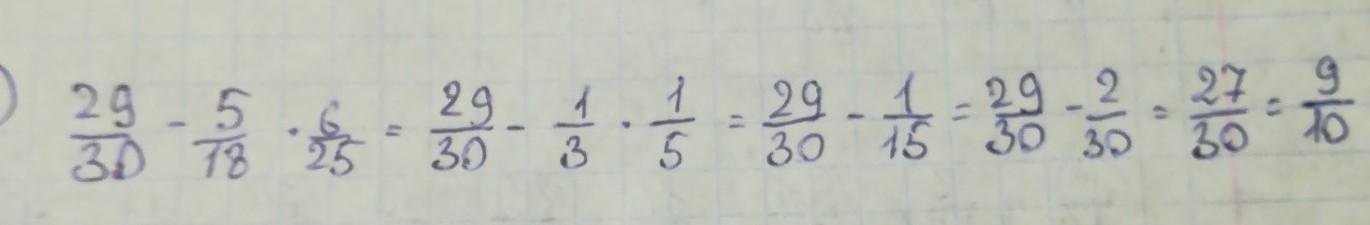 ) 29/30 - 5/18 · 6/25 = 29/30 - 1/3 · 1/5 = 29/30 - 1/15 = 29/30 - 2/30 = 27/30 = 9/10